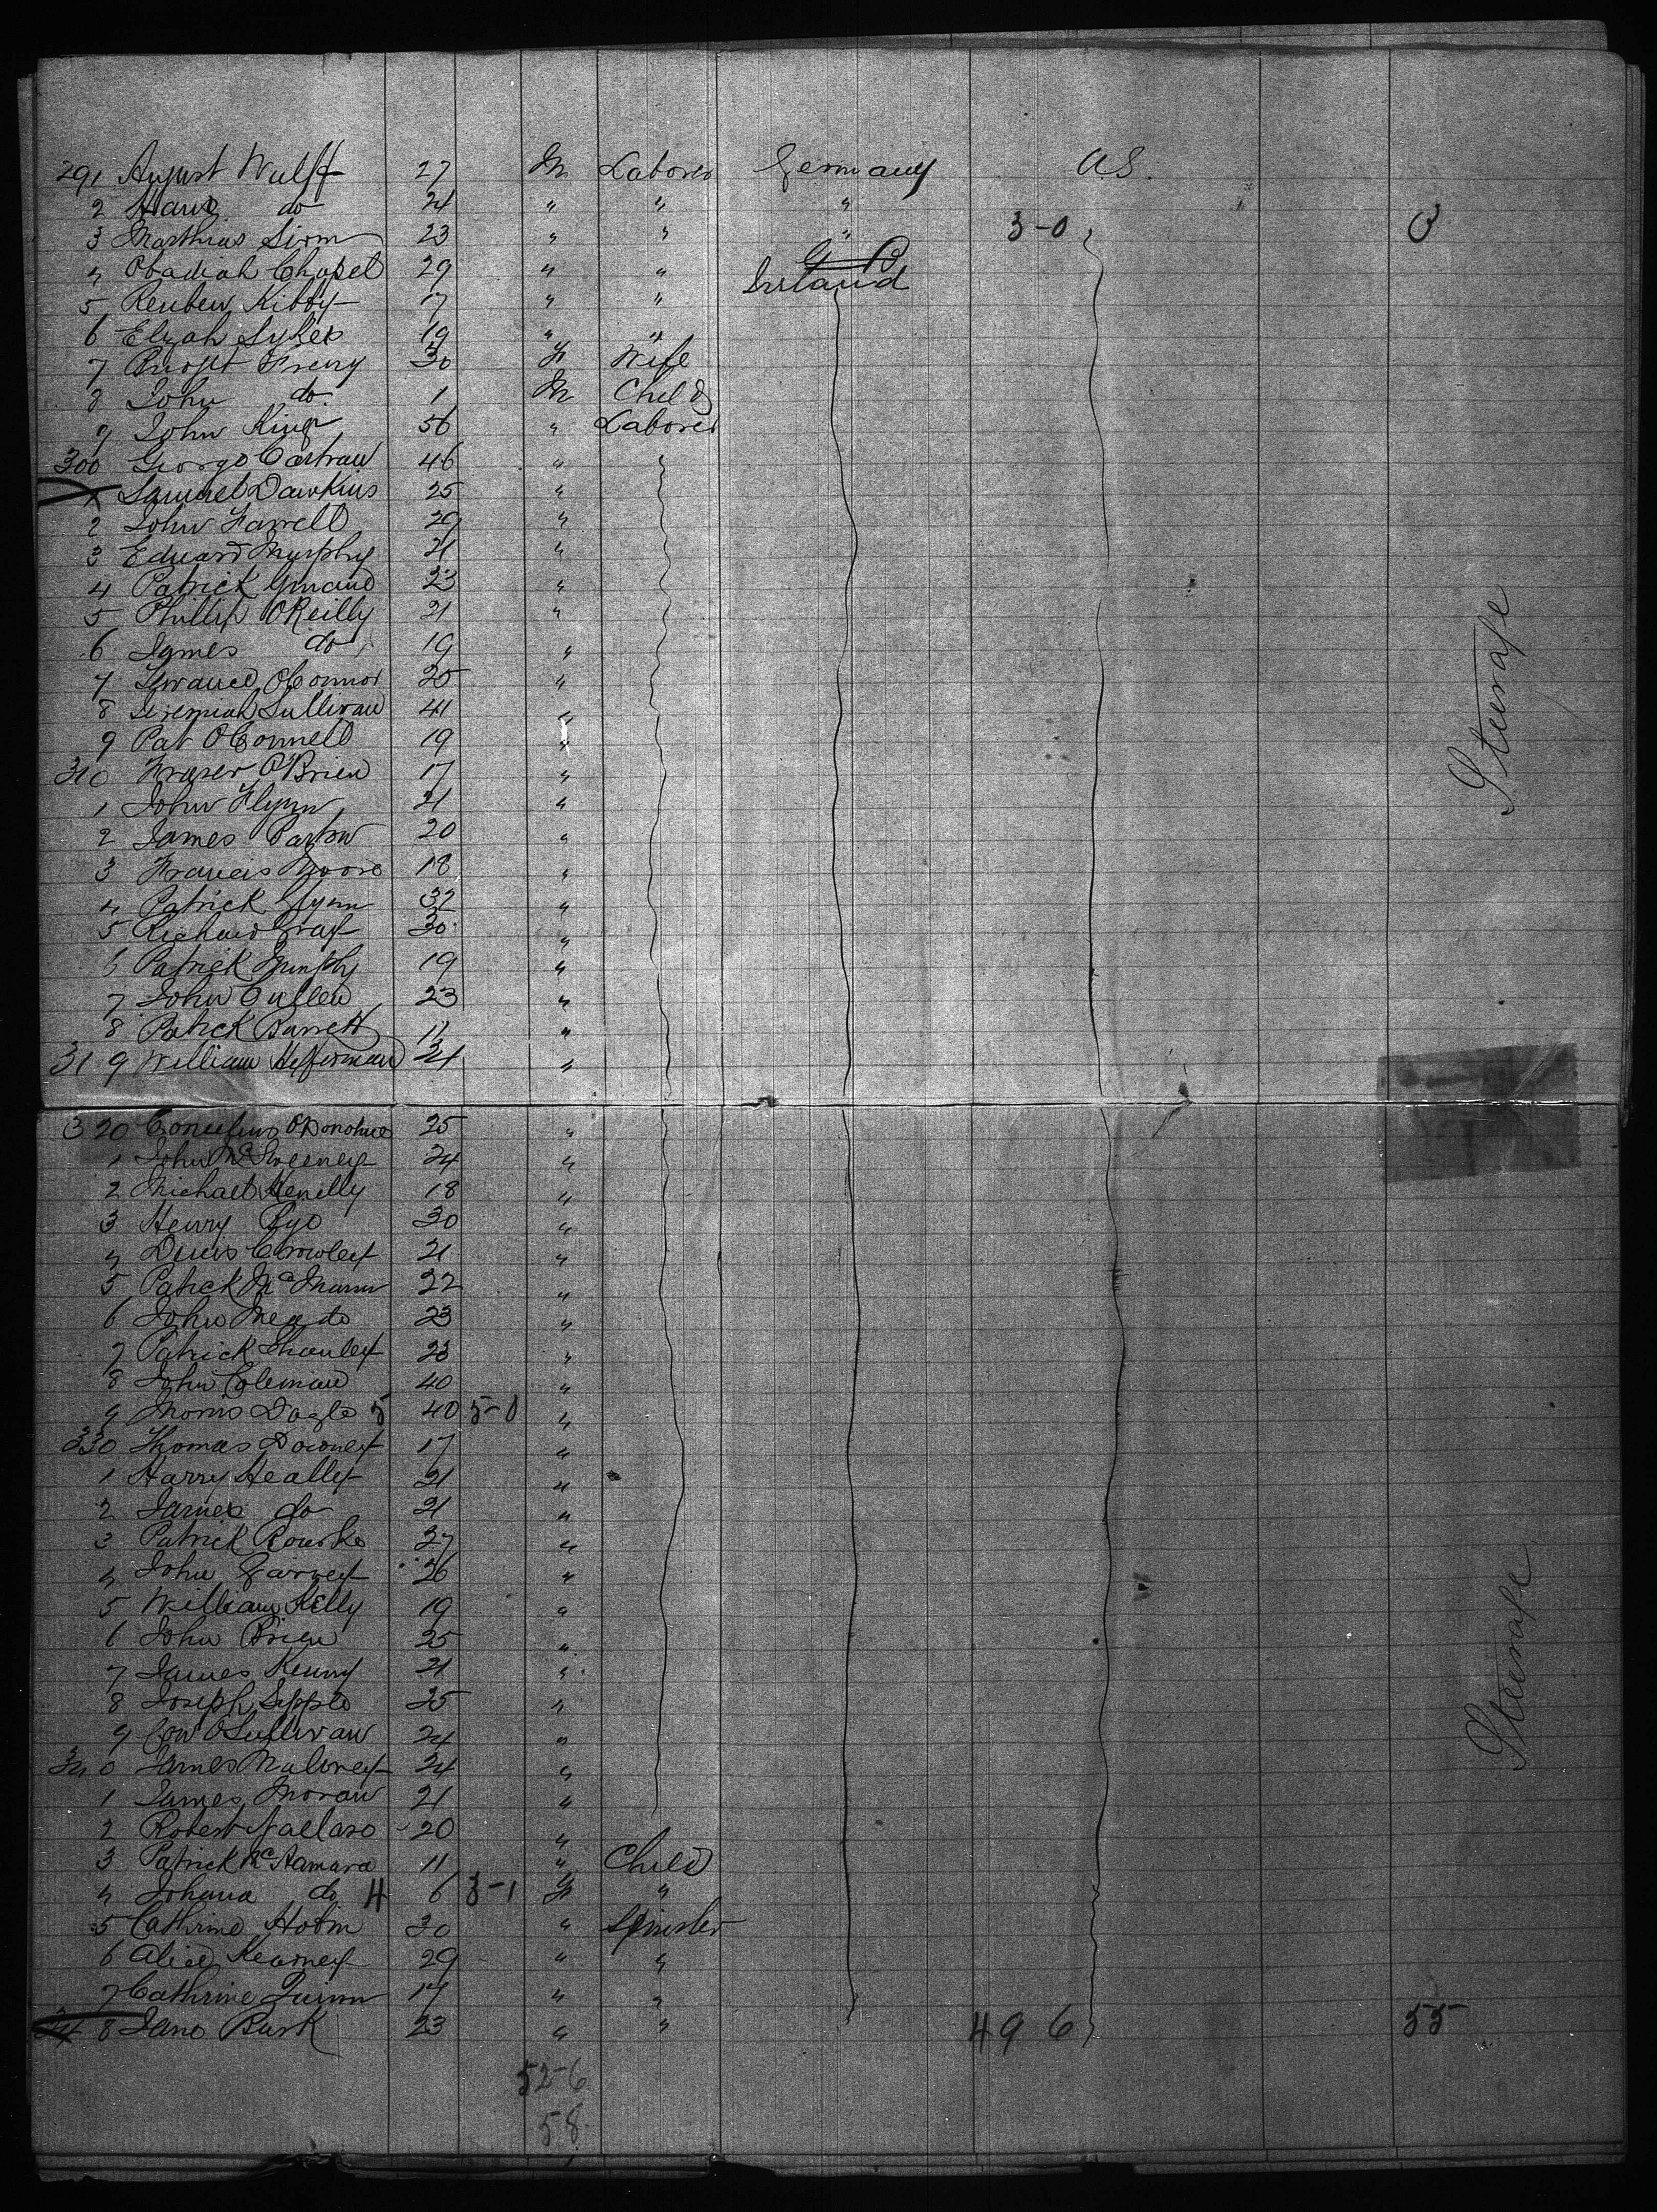 291 August Wulff 27 M Laborer Germany U.S.
2 Hans do 21 " " "
3 Matthias Sirm 23 " " " 3-0 3
4 Obadiah Chapel 29 " " Ireland
5 Reuben Kibby 17 " "
6 Elijah Sykes 19 " "
7 Bridget Freny 30 F Wife
8 John do. 1 M Child
9 John King 56 " Laborer
300 George Cartraw 46 "
1 Samuel Dawkins 25 "
2 John Farrell 29 "
3 Edward Murphy 21 "
4 Patrick 23 "
5 Phillip O'Reilly 21 "
6 James do 19 "
7 Terance O'Connor 25 "
8 Jeremiah Sullivan 41 "
9 Pat O'Connell 19 "
310 Fraser O'Brien 17 "
1 John Flynn 21 "
2 James Parton 20 "
3 Francis Moore 18 "
4 Patrick Glynn 32 "
5 Richard Gray 30 "
6 Patrick Murphy 19 "
7 John Cullen 23 "
8 Patrick Barrett "
319 William Heffernan 24 "
Steerage
320 Cornelius O'Donohue 25 "
1 John McSweeney 24 "
2 Michael Kenelly 18 "
3 Henry Pyo 30 "
4 Denis Crowley 21 "
5 Patrick McMann 22 "
6 John Meade 23 "
7 Patrick Shanley 23 "
8 John Coleman 40 "
9 Morris Dagle 5 40 5-0 "
330 Thomas Downey 17 "
1 Harry Healey 21 "
2 James do 21 "
3 Patrick Rourke 27 "
4 John Garvey 26 "
5 William Kelly 19 "
6 John Brien 25 "
7 James Kenny 21 "
8 Joseph Sipple 25 "
9 Con O'Sullivan 24 "
340 James Maloney 24 "
1 James Moran 21 "
2 Robert 20 "
3 Patrick McNamara 11 " Child
4 Johana do 4 6 3-1 F "
5 Cathrine Hobin 30 " Spinster
6 Alice Kearney 29 " "
7 Cathrine Quinn 17 " "
8 Jane Burk 23 " " 49 6 55
Steerage
52-6
58